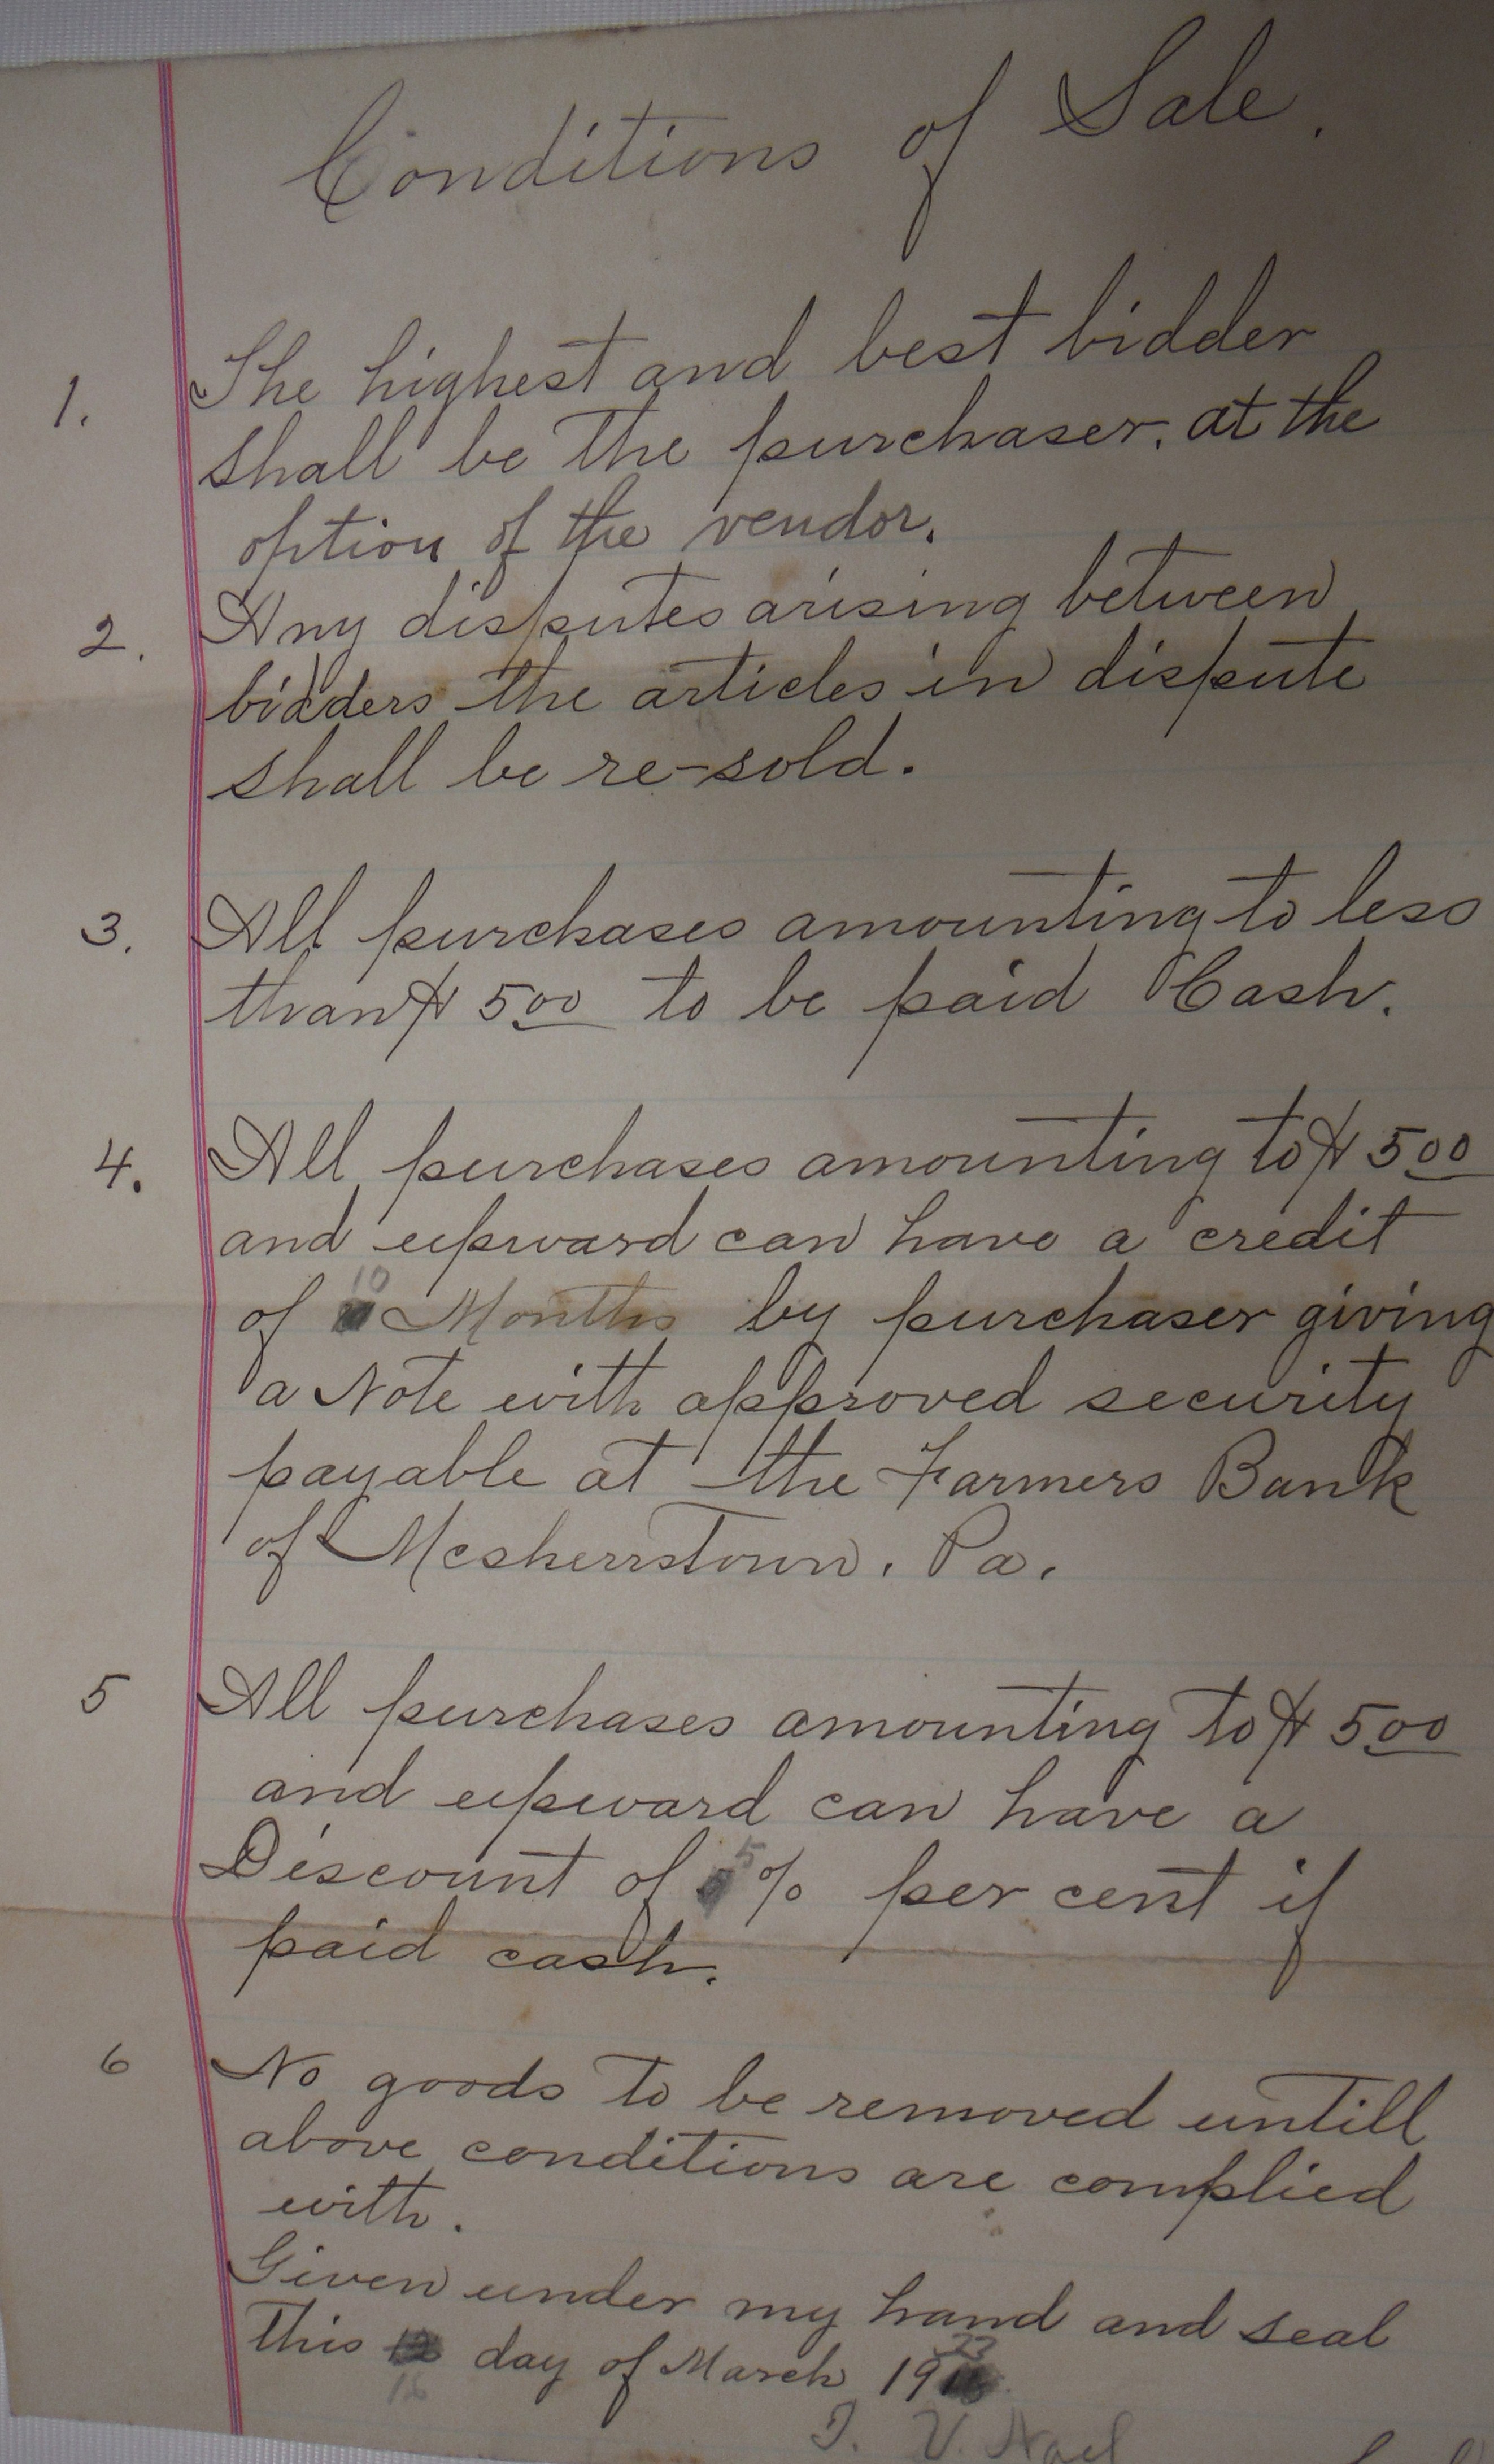 Conditions of Sale.
1. The highest and best bidder
shall be the purchaser. at the
option of the vendor.
2. Any disputes arising between
bidders the articles in dispute
shall be re-sold.
3. All purchases amounting to less
than $ 5.00 to be paid Cash.
4. All purchases amounting to $ 5.00
and upward can have a credit
of 10 Months by purchaser giving
a Note with approved security
payable at the Farmers Bank
of Mcsherrstown. Pa.
5 All purchases amounting to $ 5.00
and upward can have a
Discount of 5 % per cent if
paid cash.
6 No goods to be removed untill
above conditions are complied
with.
Given under my hand and seal
This 16 day of March 1923
V.